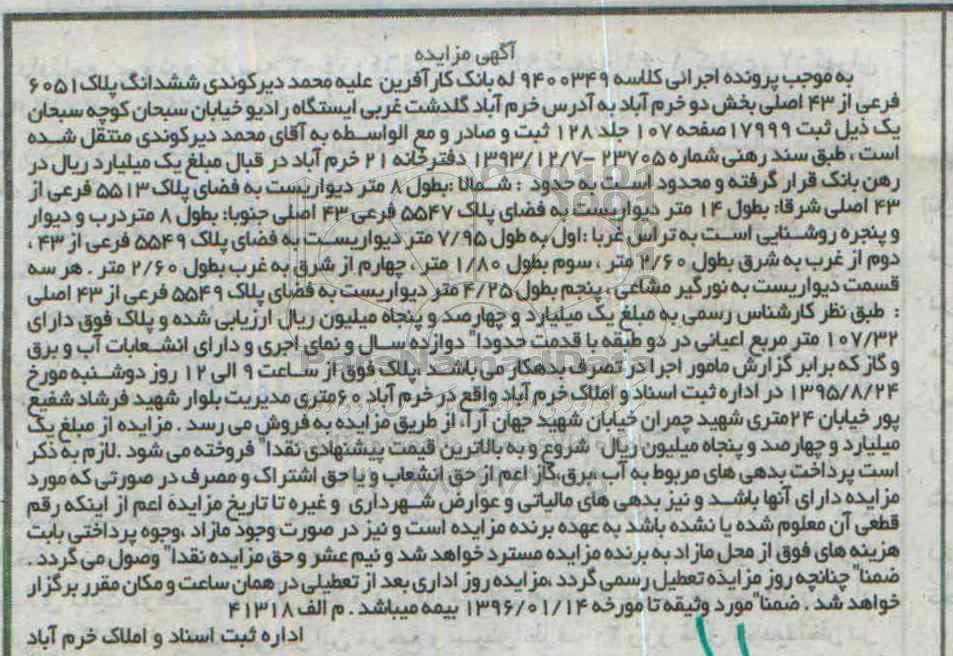 آگهی مزایده
به موجب پرونده اجرائی کلاسه ۹۴۰۰۳۴۹ له بانک کارآفرین علیه محمد دیرکوندی ششدانگ پلاک ۶۰۵۱
فرعی از ۴۳ اصلی بخش دو خرم آباد به آدرس خرم آباد گلدشت غربی ایستگاه رادیو خیابان سبحان کوچه سبحان
یک ذیل ثبت ۱۷۹۹۹ صفحه ۱۰۷ جلد ۱۲۸ ثبت و صادر و مع الواسطه به آقای محمد دیرکوندی منتقل شده
است ، طبق سند رهنی شماره ۲۳۷۰۵ –۱۳۹۳/۱۲/۷ دفترخانه ۲۱ خرم آباد در قبال مبلغ یک میلیارد ریال در
رهن بانک قرار گرفته و محدود است به حدود : شمالا :بطول ۸ متر دیواریست به فضای پلاک ۵۵۱۳ فرعی از
۴۳ اصلی شرقا: بطول ۱۴ متر دیواریست به فضای پلاک ۵۵۴۷ فرعی ۴۳ اصلی جنوبا: بطول ۸ متر درب و دیوار
و پنجره روشنایی است به تراس غربا :اول به طول ۷/۹۵ متر دیواریست به فضای پلاک ۵۵۴۹ فرعی از ۴۳ ،
دوم از غرب به شرق بطول ۲/۶۰ متر ، سوم بطول ۱/۸۰ متر ، چهارم از شرق به غرب بطول ۲/۶۰ متر . هر سه
قسمت دیواریست به نورگیر مشاعی ، پنجم بطول ۴/۲۵ متر دیواریست به فضای پلاک ۵۵۴۹ فرعی از ۴۳ اصلی
: طبق نظر کارشناس رسمی به مبلغ یک میلیارد و چهارصد و پنجاه میلیون ریال ارزیابی شده و پلاک فوق دارای
۱۰۷/۳۲ متر مربع اعیانی در دو طبقه با قدمت حدودا" دوازده سال و نمای اجری و دارای انشعابات آب و برق
و گاز که برابر گزارش مامور اجرا در تصرف بدهکار می باشد ،پلاک فوق از ساعت ۹ الی ۱۲ روز دوشنبه مورخ
۱۳۹۵/۸/۲۴ در اداره ثبت اسناد و املاک خرم آباد واقع در خرم آباد ۶۰متری مدیریت بلوار شهید فرشاد شفیع
پور خیابان ۲۴متری شهید چمران خیابان شهید جهان آرا، از طریق مزایده به فروش می رسد . مزایده از مبلغ یک
میلیارد و چهارصد و پنجاه میلیون ریال شروع و به بالاترین قیمت پیشنهادی نقدا" فروخته می شود .لازم به ذکر
است پرداخت بدهی های مربوط به آب ،برق،گاز اعم از حق انشعاب و یا حق اشتراک و مصرف در صورتی که مورد
مزایده دارای آنها باشد و نیز بدهی های مالیاتی و عوارض شهرداری و غیره تا تاریخ مزایده اعم از اینکه رقم
قطعی آن معلوم شده یا نشده باشد به عهده برنده مزایده است و نیز در صورت وجود مازاد ،وجوه پرداختی بابت
هزینه های فوق از محل مازاد به برنده مزایده مسترد خواهد شد و نیم عشر و حق مزایده نقدا" وصول می گردد .
ضمنا" چنانچه روز مزایده تعطیل رسمی گردد ،مزایده روز اداری بعد از تعطیلی در همان ساعت و مکان مقرر برگزار
خواهد شد . ضمنا"مورد وثیقه تا مورخه ۱۳۹۶/۰۱/۱۴ بیمه میباشد . م الف ۴۱۳۱۸
اداره ثبت اسناد و املاک خرم آباد
ParsNamadData